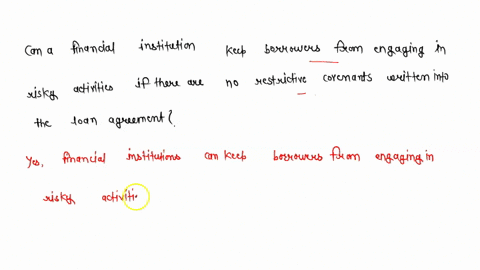 Can a financial institution keep borrowers from engaging in
risky activities if there are no restrictive covenants written into
the loan agreement?
Yes, financial institutions can keep borrowers from engaging in
risky activiti